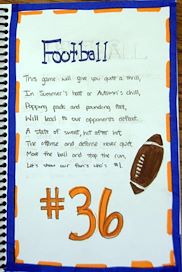 Football
This game will give you quite a thrill,
In Summer's heat or Autumn's chill,
Popping pads and pounding feet,
Will lead to our opponents defeat.
A state of sweat, hit after hit
The offense and defense never quit.
Move the ball and stop the run,
Let's show our fan's who's #1.
#36